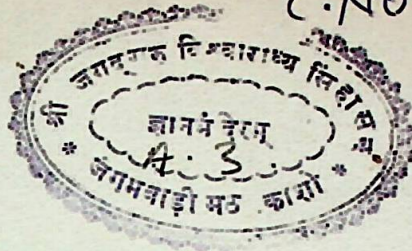 C. No
श्री जगद्गुरु विश्वाराध्य सिंहासन
ज्ञानमंदिरम्
A. 3.
* जंगमवाड़ी मठ काशी *